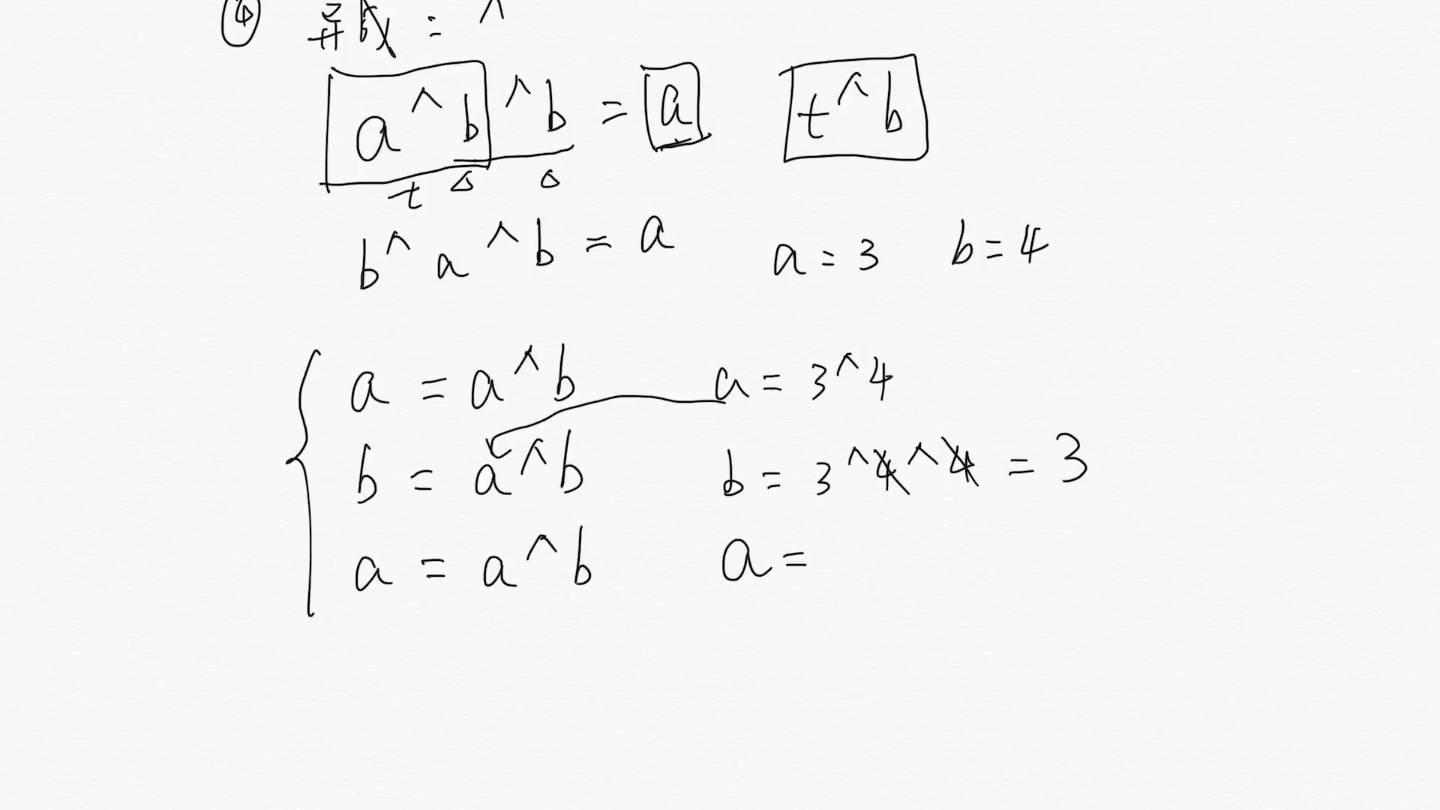 ④ 异或：^
a^b^b = a t^b
t △ △
b^a^b = a a=3 b=4
a = a^b a = 3^4
b = a^b b = 3^4^4 = 3
a = a^b a =